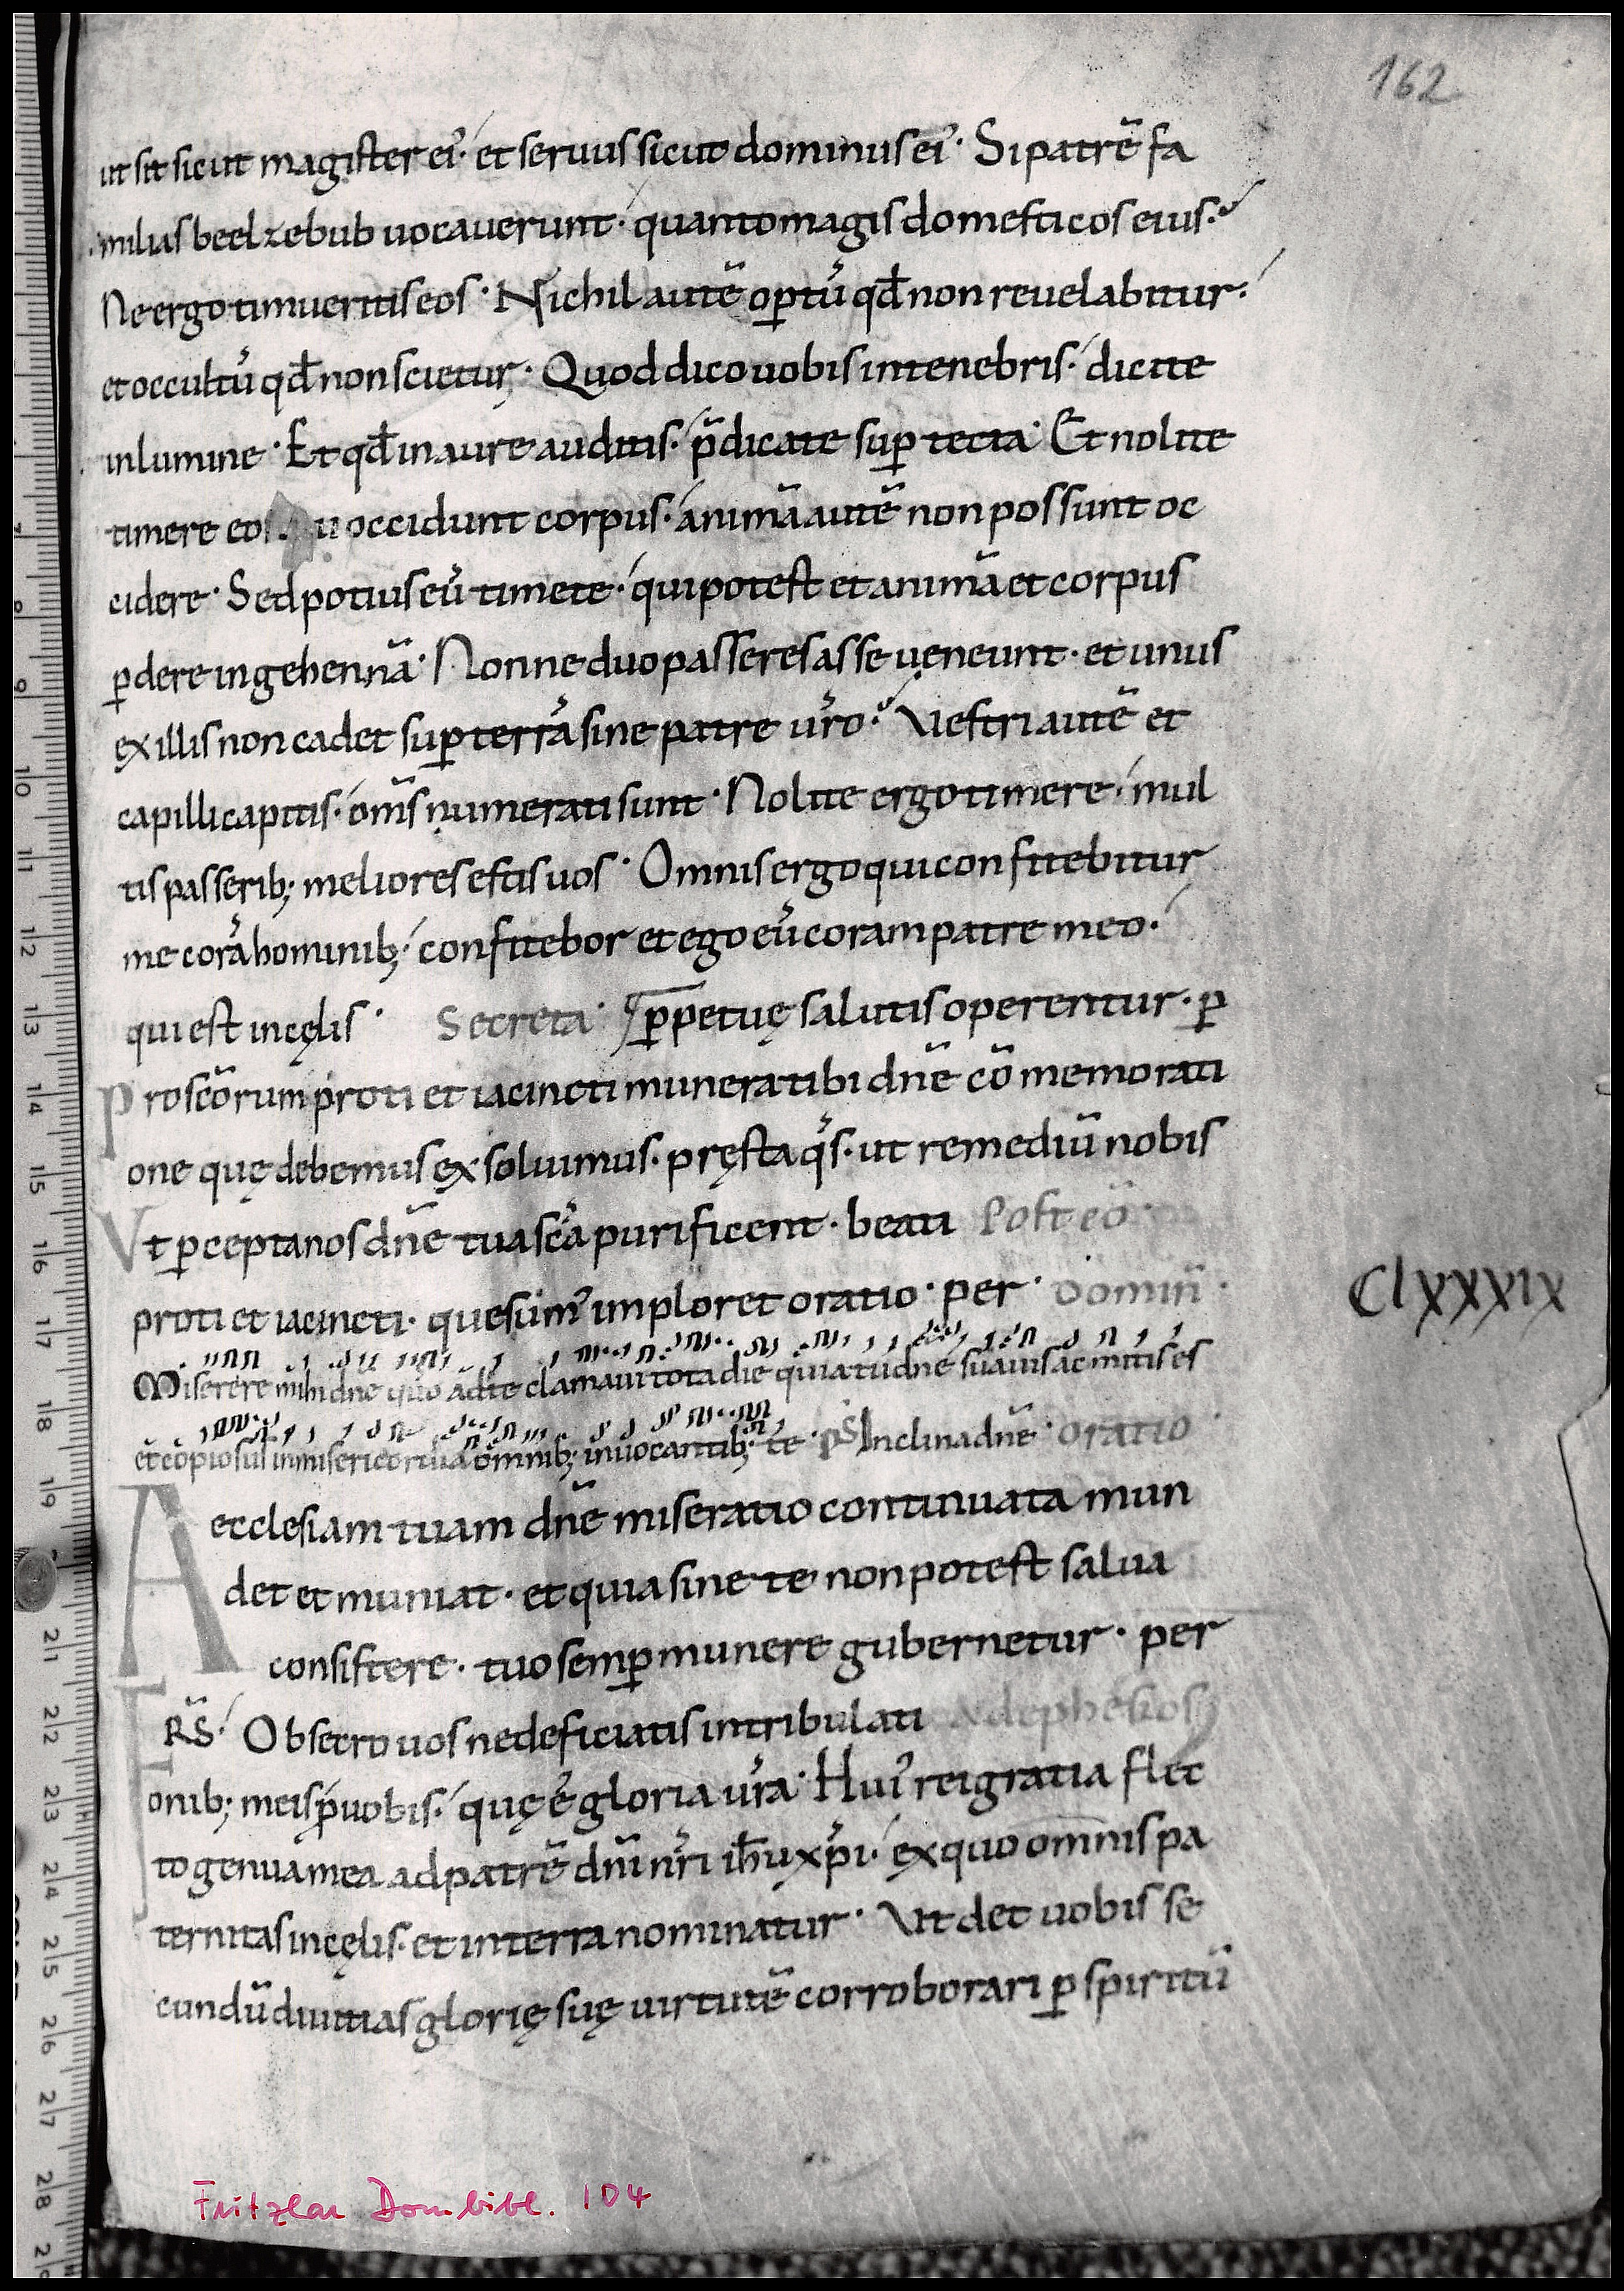 162
ut sit sicut magister eiꝰ· et seruus sicut dominus eiꝰ· Si patrē fa
milias beelzebub uocauerunt· quanto magis domesticos eius·
Ne ergo timueritis eos· Nichil autē optū qđ non reuelabitur·
et occultū qđ non scietur· Quod dico uobis in tenebris· dicite
in lumine· Et qđ in aure auditis· p̄dicate sup tecta· Et nolite
timere eos qui occidunt corpus· animā autē non possunt oc
cidere· Sed potius eū timete· qui potest et animā et corpus
ꝑdere in gehennā· Nonne duo passeres asse ueneunt· et unus
ex illis non cadet suꝑ terrā sine patre uro· Vestri autē et
capilli capitis· om̄s numerati sunt· Nolite ergo timere· mul
tis passerib; meliores estis uos· Omnis ergo qui confitebitur
me corā hominib; confitebor et ego eū coram patre meo·
qui est in cęlis· Secreta· ꝑpetuę salutis operentur· ꝑ
Pro scōrum proti et iacincti munera tibi dn̄e cōmemorati
one quę debemus exsoluimus· pręsta q̄s· ut remediū nobis
Vt ꝑcepta nos dn̄e tua scā purificent· beati Post cō
proti et iacincti· quesumꝰ imploret oratio· per· Domin̄·
CLXXXIX
Miserere mihi dn̄e quō ad te clamaui tota die quia tu dn̄e suauis ac mitis es
et copiosus in misericordia omnib; inuocantib; te· ps̄ Inclina dn̄e· Oratio·
Aecclesiam tuam dn̄e miseratio continuata mun
det et muniat· et quia sine te non potest salua
consistere· tuo semꝑ munere gubernetur· per
FRS̄· Obsecro uos ne deficiatis in tribulati Ad ephesios
onib; meis ꝓ uobis· quę ē gloria ura· Huiꝰ rei gratia flec
to genua mea ad patrē dn̄i nri ih̄u xp̄i· ex quo omnis pa
ternitas in cęlis· et in terra nominatur· Vt det uobis se
cundū diuitias glorię suę uirtutē corroborari ꝑ spiritū
Fritzlar Dombibl. 104